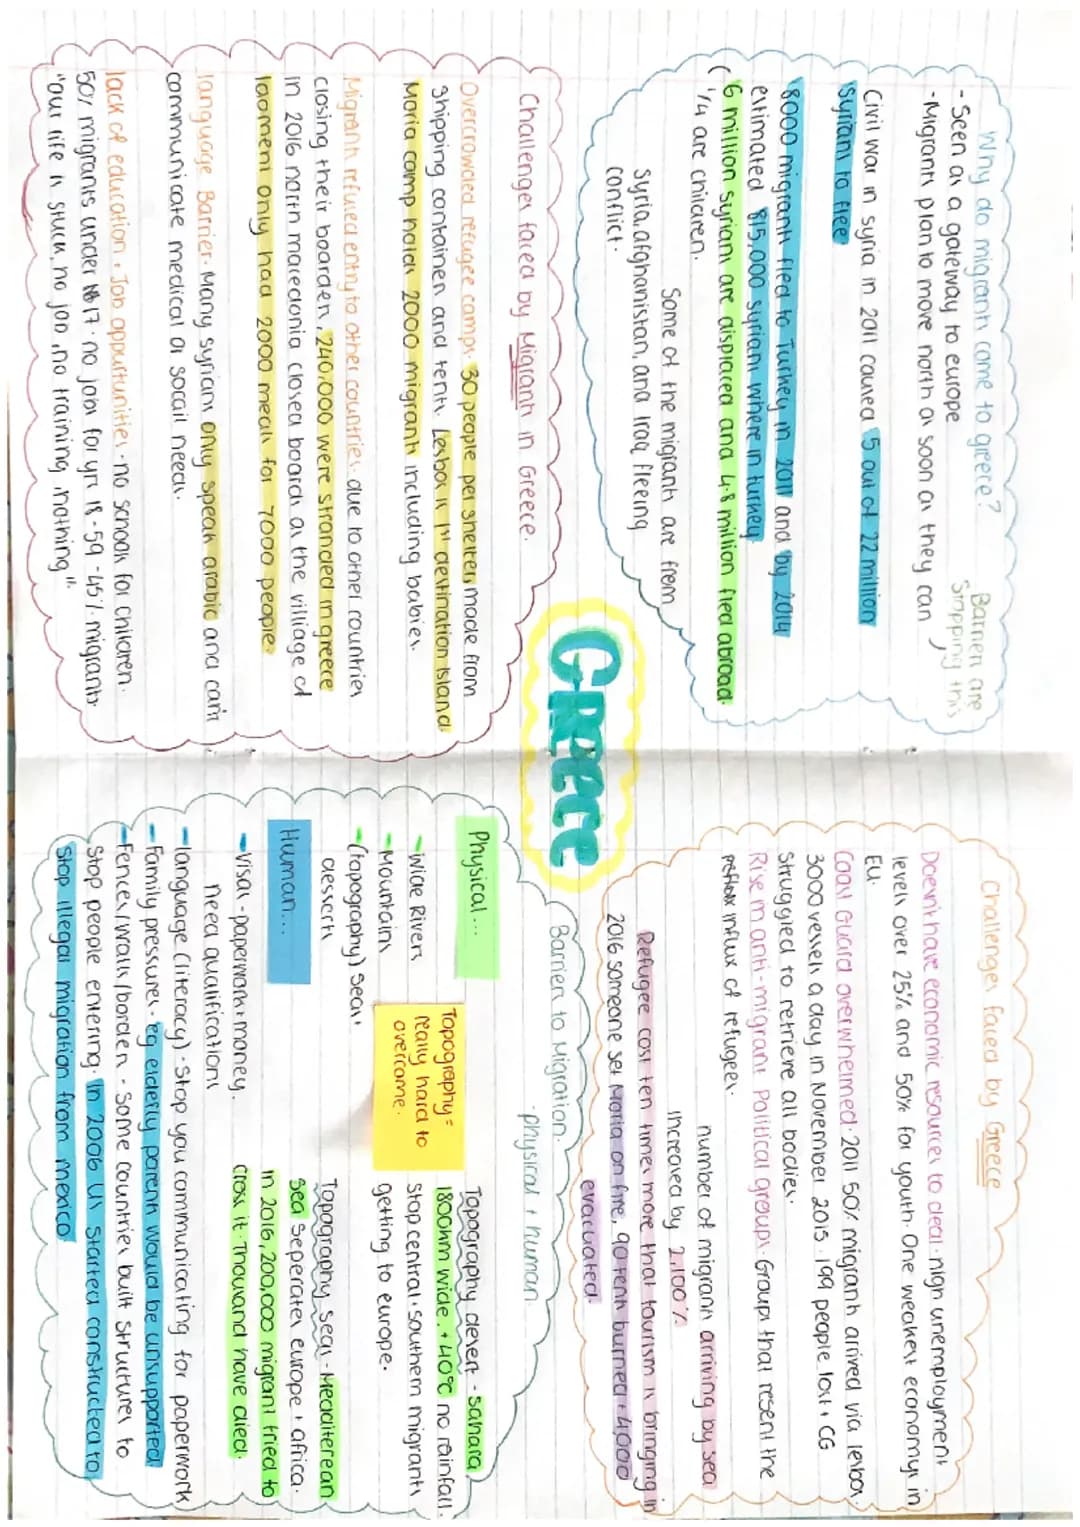 Greece
Why do migrants come to greece?
- Seen as a gateway to europe
- Migrants plan to move north as soon as they can
Barriers are
stopping this
Civil war in syria in 2011 caused 5 out of 22 million
Syrians to flee
8000 migrants fled to Turkey in 2011 and by 2014
estimated 815,000 syrians where in turkey
6 million syrians are displaced and 4.8 million fled abroad.
1/4 are children.
Some of the migrants are from
Syria, afghanistan, and Iraq fleeing
conflict.
Challenges faced by Migrants in Greece.
Overcrowded refugee camps. 30 people per shelter, made from
Shipping contained and tents. Lesbos is 1st destination island
Moria camp holds 2000 migrants including babies.
Migrants refused entry to other countries. due to other countries
closing their boarders, 240,000 were stranded in greece
in 2016 north macedonia closed boards as the villiage of
Idomeni only had 2000 meals for 7000 people.
language Barrier. Many syrians only speak arabic and can't
communicate medical or socail needs.
lack of education + Job oppurtunities. no schools for children.
50% migrants under 17. no jobs for yrs 18-59 - 45% migrants
"our life is stuck, no jon, no training, nothing".
Challenges faced by Greece
Doesn't have economic resources to deal. high unemployment
levels over 25% and 50% for youth. One weakest economys in
EU.
Coast Guard overwhelmed. 2011 50% migrants arrived via lesbos.
3000 vessels a day in November 2015. 199 people lost + CG
Struggled to retrieve all bodies.
Rise in anti-migrant Political groups. Groups that resent the
influx of refugees.
number of migrants arriving by sea
Increased by 2,100%
Refugee cost ten times more that tourism is bringing in
2016 someone set Moria on fire, 90 tents burned + 4,000
evacuated.
Barriers to Migration.
· physical + human
Physical...
- Wide Rivers
- Mountains
- (topography) Seas.
desserts
Topography =
really hard to
overcome.
Topography desert - Sahara
1800km wide. +40°C no rainfall.
Stop central + southern migrants
getting to europe.
Topography seas - Meditterean
Sea seperates europe + africa.
in 2016, 200,000 migrant tried to
cross it. Thousand have died.
Human...
- Visas - paperwork + money.
need qualifications
- language (literacy) - Stop you communicating for paperwork
- Family pressures - eg elderly parents would be unsupported
- Fences/walls/borders - Some countries built structures to
Stop people entering. In 2006 US started constructed to
Stop illegal migration from mexico